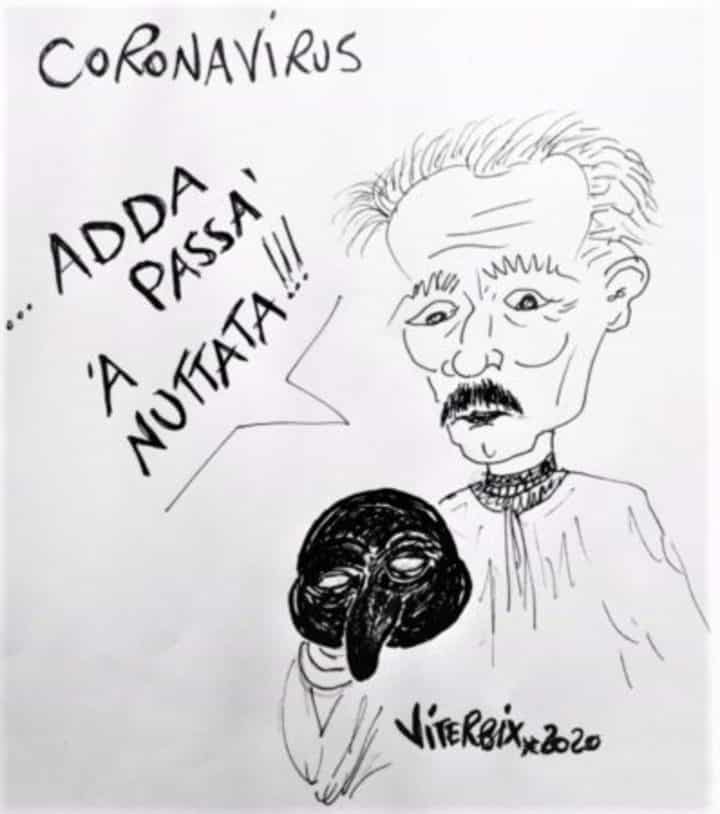 CORONAVIRUS
... ADDA
PASSA'
'A
NUTTATA!!!
VITERBIX 2020